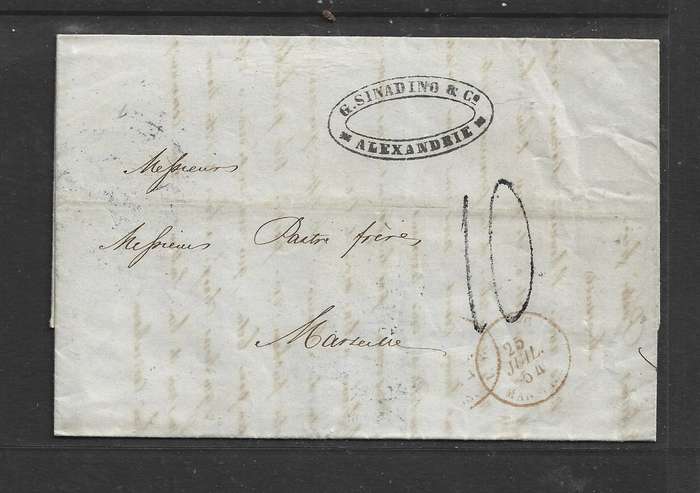 G. SINADINO & Co
ALEXANDRIE
Messieurs
Messieurs Pastre frères
10
Marseille
25
JUIL.
54